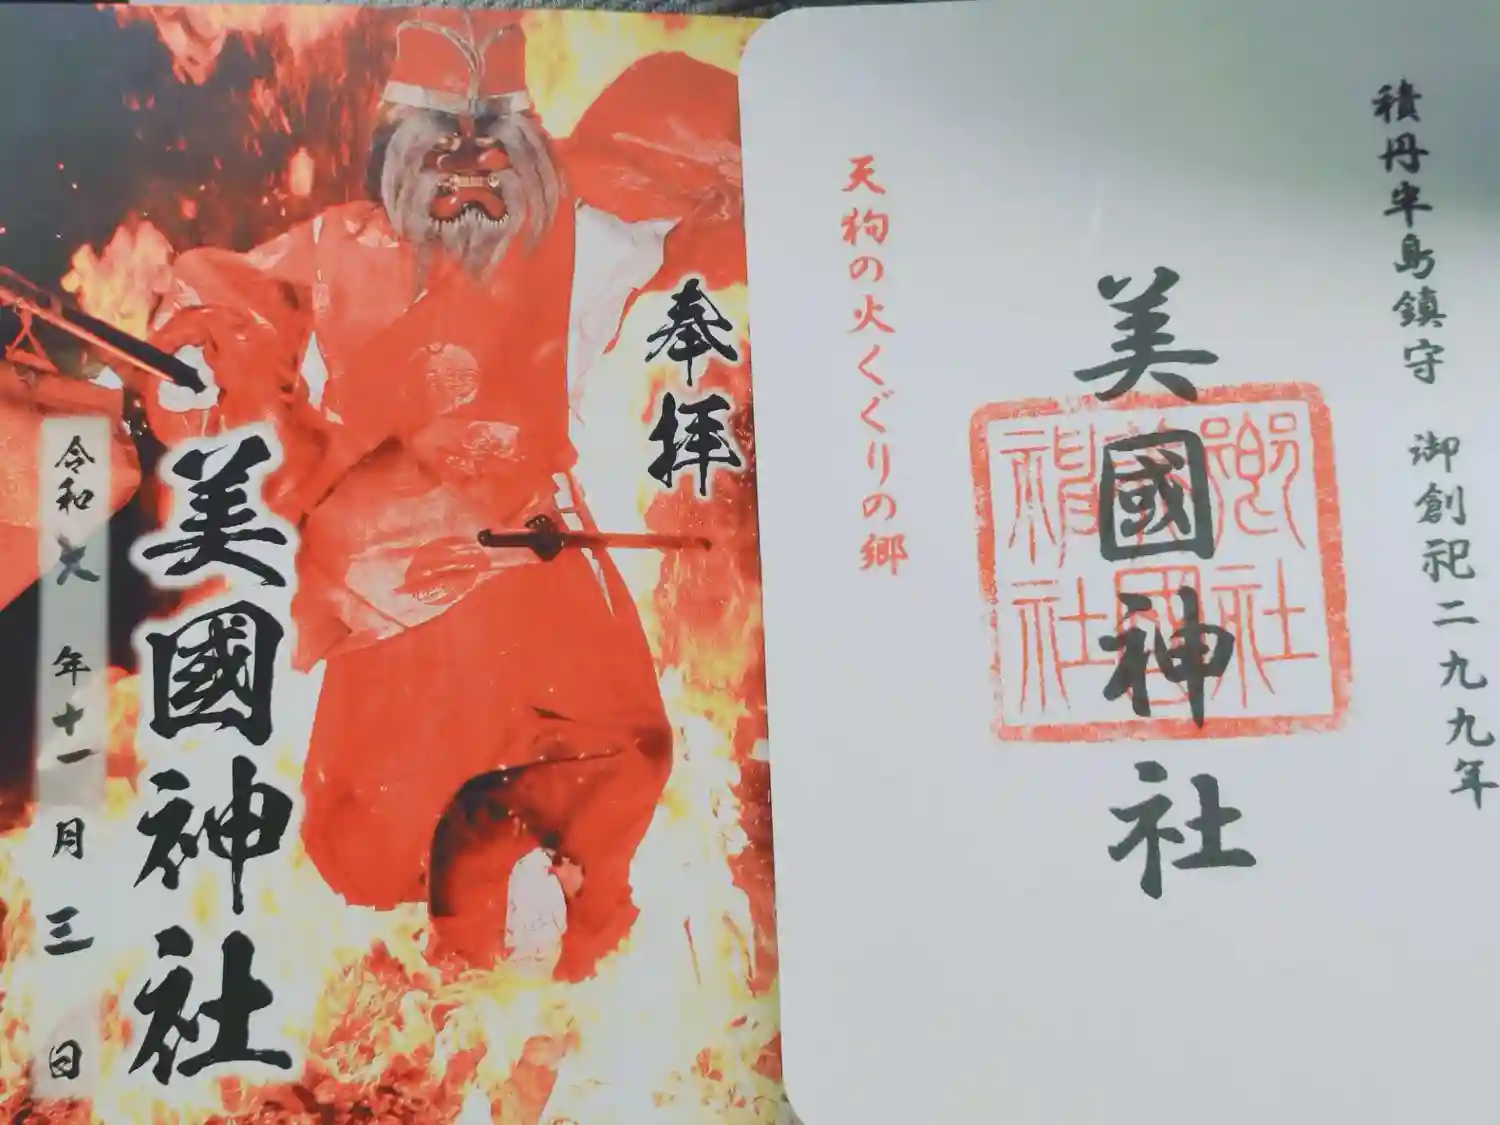 積丹半島鎮守 御創祀二九九年
美國神社
天狗の火くぐりの郷
郷社
美國
神社
奉拝
美國神社
令和六年十一月三日